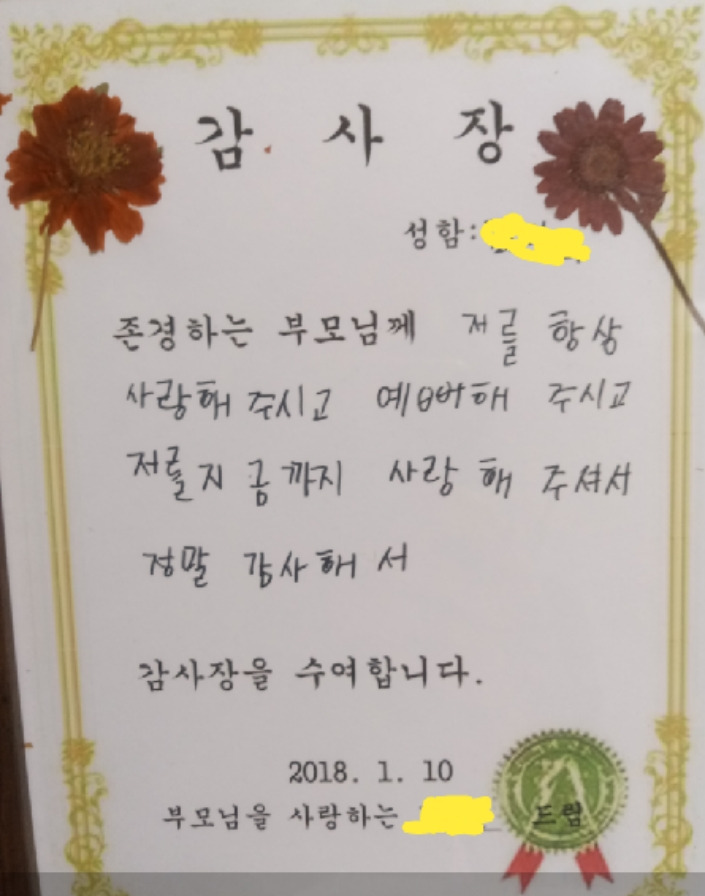 감 사 장
성함:
존경하는 부모님께 저를 항상
사랑해 주시고 예뻐해 주시고
저를 지금까지 사랑해 주셔서
정말 감사해서
감사장을 수여합니다.
2018. 1. 10
부모님을 사랑하는 드림